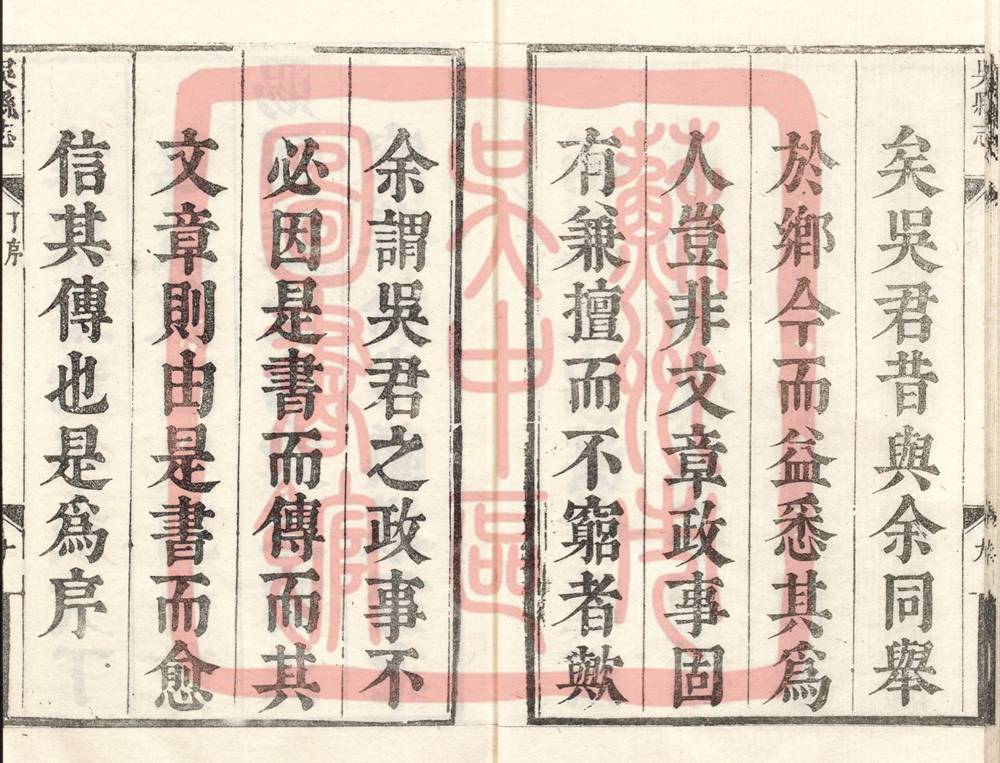 矣吳君昔與余同舉
於鄉今而益悉其爲
人豈非文章政事固
有兼擅而不窮者歟
余謂吳君之政事不
必因是書而傳而其
文章則由是書而愈
信其傳也是爲序
吳縣志
丁序
吳縣志
蘇州市
吳中區
圖書館